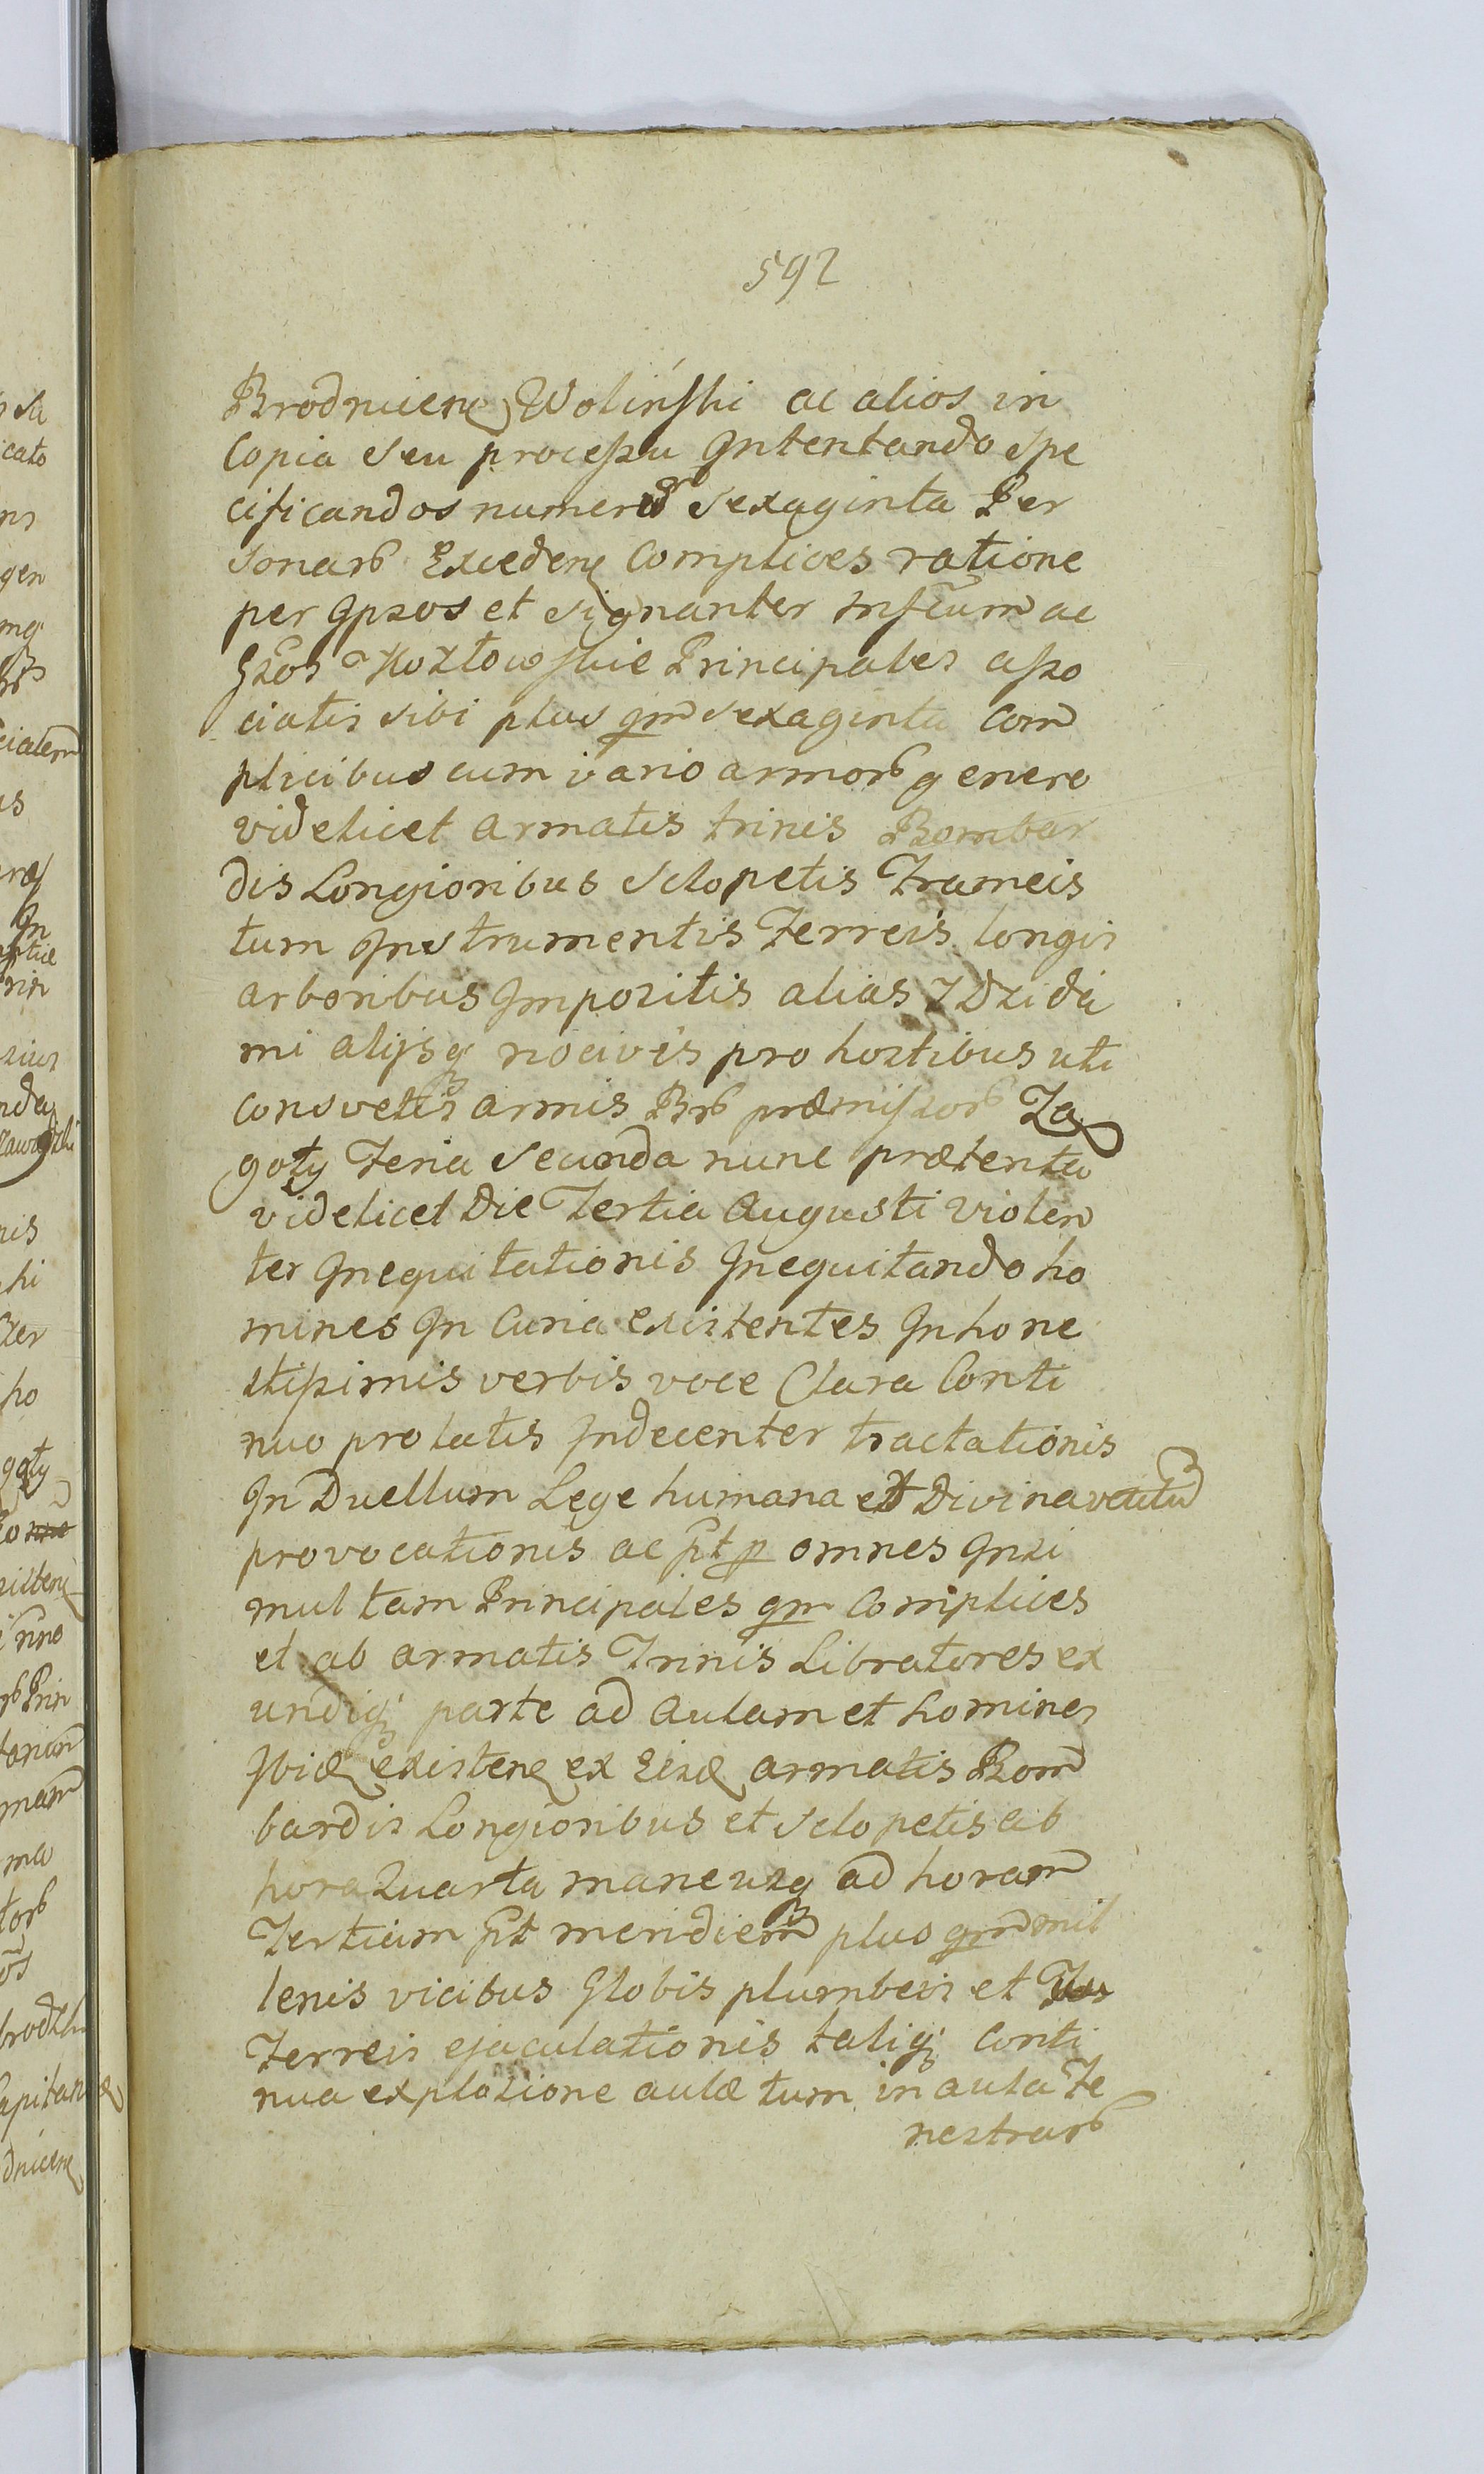 592
Brodnicen Wolinſki ac alios in
Copia Seu proceſsu Intentando Spe
cificandos numero Sexaginta Per
sonarum Exceden Complices ratione
per Ipsos et signanter Mgficum ac
Gsos Kozłowſkie Principales aſso
ciatis sibi plus qm Sexaginta Com
plicibus cum vario armorum genere
videlicet armatis trinis Bombar
dis Longioribus Sclopetis Frameis
tum Instrumentis Ferreis longis
arboribus Impositis alias z Dzida
mi alijsq nocivis pro hostibus uti
consvetis armis Brum præmiſsorum Za
goty Feria Secunda nunc prætenta
videlicet Die Tertia Augusti violen
ter Inequitationis Inequitando ho
mines In Curia existentes Inhone
stiſsimis verbis voce Clara Conti
nuo prolatis Indecenter tractationis
In Duellum Lege humana et Divina vetitum
provocationis ac pt p omnes Insi
mul tam Principales qm Complices
et ab armatis Trinis Libratores ex
undiq; parte ad Aulam et homines
Ibid existen ex Eisd armatis Bom
bardis Longioribus et Sclopetis ab
hora Quarta mane usq ad horam
Tertiam pt meridiem plus qm mil
lenis vicibus Globis plumbeis et
Ferreis ejaculationis taliq; Conti
nua explosione aulæ tum in aula Fe
nestrarum